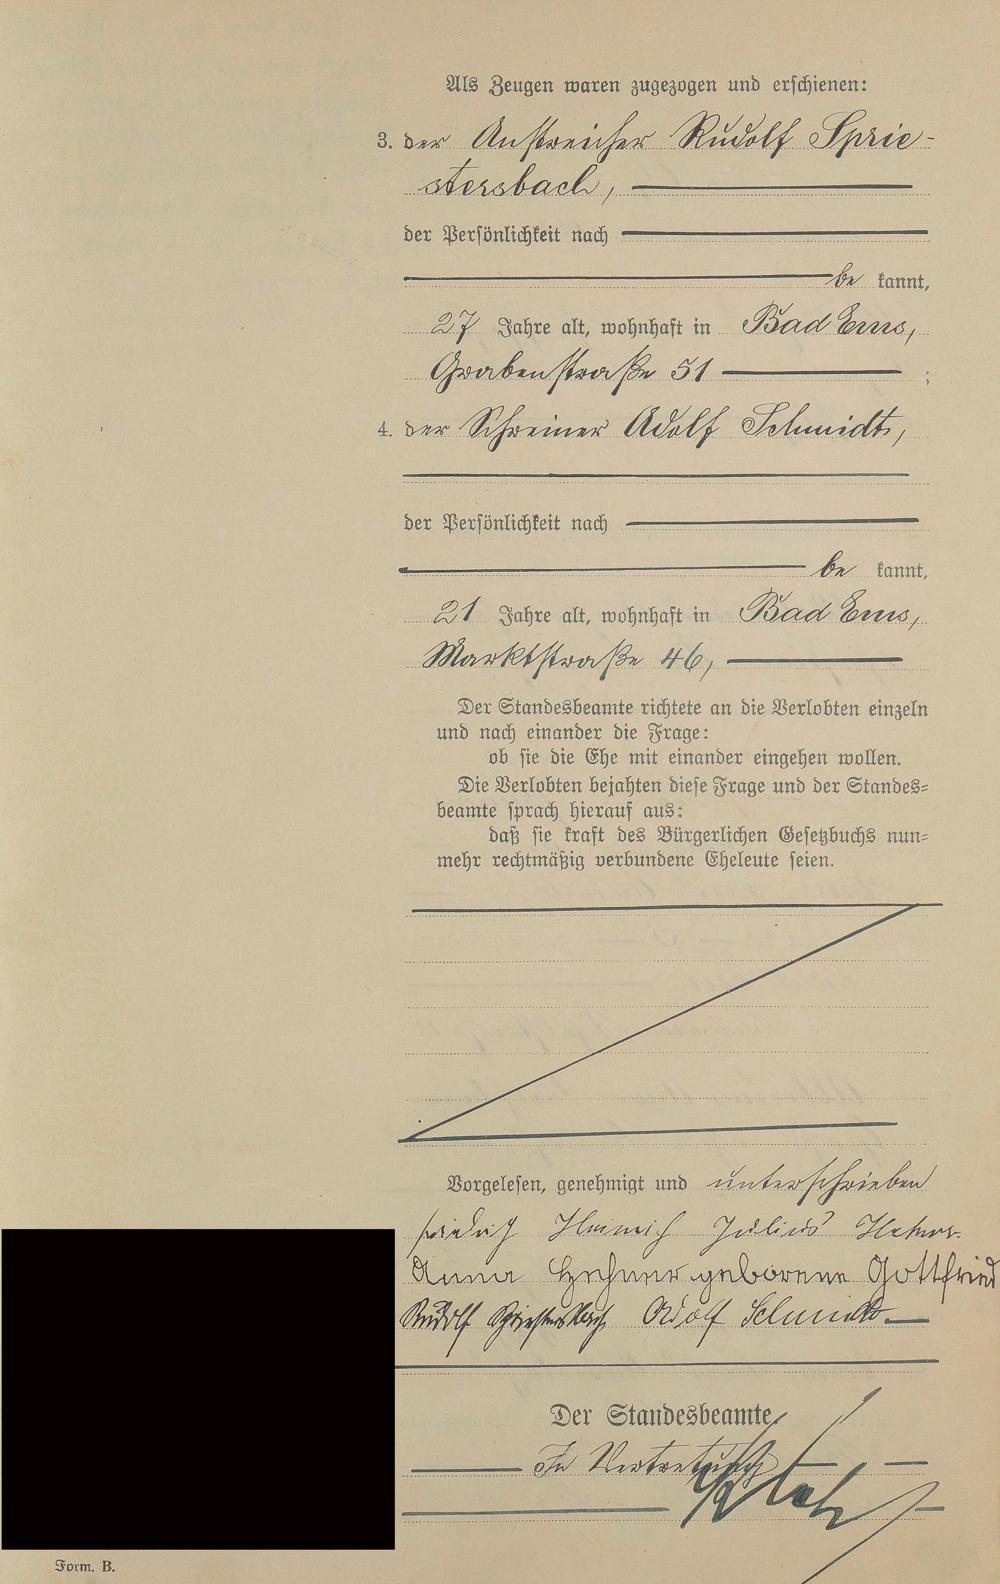 Als Zeugen waren zugezogen und erschienen:
3. der Anstreicher Rudolf Sprie-
stersbach,
der Persönlichkeit nach
be kannt,
27 Jahre alt, wohnhaft in Bad Ems,
Grabenstraße 51 ;
4. der Schreiner Adolf Schmidt,
der Persönlichkeit nach
be kannt,
21 Jahre alt, wohnhaft in Bad Ems,
Marktstraße 46,
Der Standesbeamte richtete an die Verlobten einzeln
und nach einander die Frage:
ob sie die Ehe mit einander eingehen wollen.
Die Verlobten bejahten diese Frage und der Standes-
beamte sprach hierauf aus:
daß sie kraft des Bürgerlichen Gesetzbuchs nun-
mehr rechtmäßig verbundene Eheleute seien.
Vorgelesen, genehmigt und unterschrieben
Heinrich Julius
Anna geborene Gottfried
Rudolf Spriestersbach Adolf Schmidt
Der Standesbeamte
In Vertretung
Form. B.